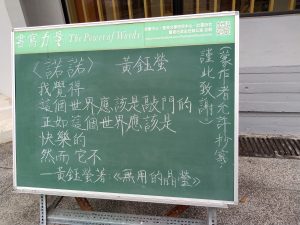 書寫力量 The Power of Words
〈諾諾〉 黃鈺螢
我覺得
這個世界應該是敲門的
正如這個世界應該是
快樂的
然而它不
—黃鈺螢著《無用的晶瑩》
（蒙作者允許抄寫，
謹此致謝）